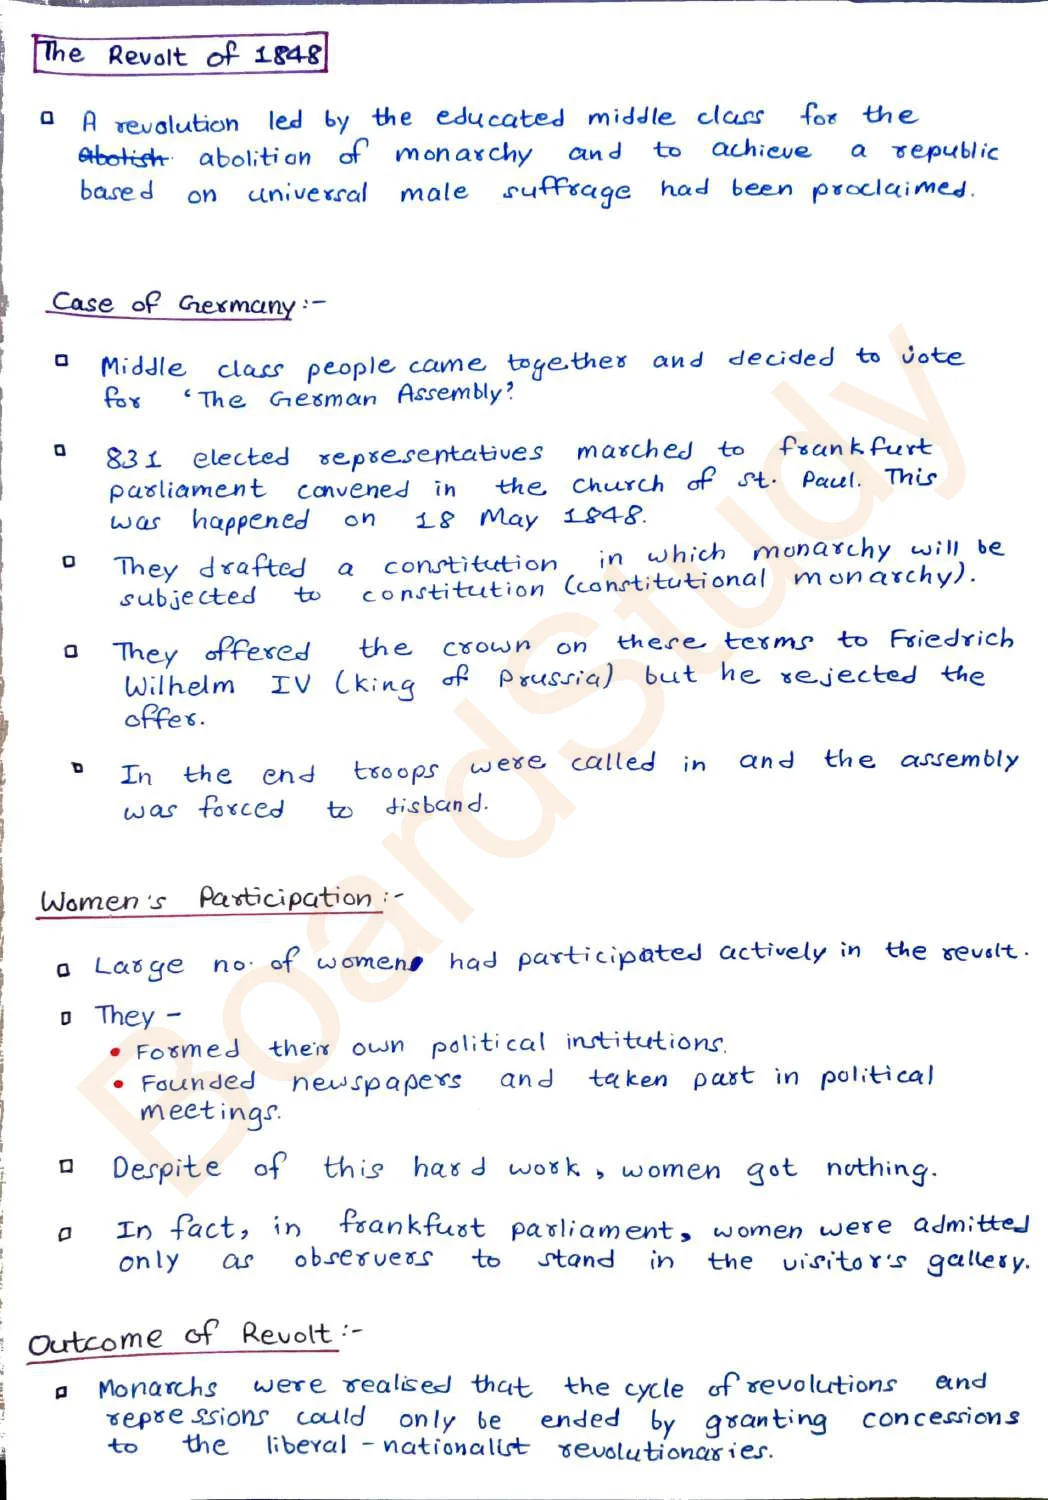 The Revolt of 1848
A revolution led by the educated middle class for the
Abolish abolition of monarchy and to achieve a republic
based on universal male suffrage had been proclaimed.
Case of Germany:-
Middle class people came together and decided to vote
for 'The German Assembly'.
831 elected representatives marched to frankfurt
parliament convened in the church of st. Paul. This
was happened on 18 May 1848.
They drafted a constitution in which monarchy will be
subjected to constitution (constitutional monarchy).
They offered the crown on these terms to Friedrich
Wilhelm IV (king of Prussia) but he rejected the
offer.
In the end troops were called in and the assembly
was forced to disband.
Women's Participation:-
Large no. of women had participated actively in the revolt.
They -
• Formed their own political institutions.
• Founded newspapers and taken part in political
meetings.
Despite of this hard work, women got nothing.
In fact, in frankfurt parliament, women were admitted
only as observers to stand in the visitor's gallery.
Outcome of Revolt:-
Monarchs were realised that the cycle of revolutions and
repressions could only be ended by granting concessions
to the liberal-nationalist revolutionaries.
BoardStudy